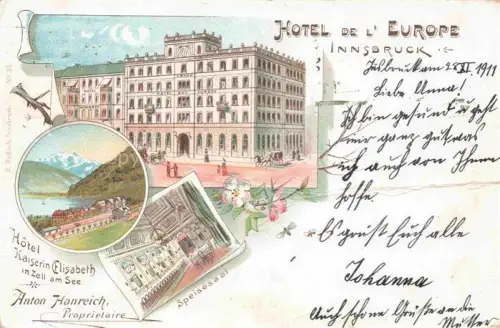 HOTEL DE L' EUROPE
INNSBRUCK
Insbruck am 28 VI 1911
Liebe Anna!
Ich bin gesund u. geht
mir ganz gut was
ich auch von Ihnen
hoffe.
Es grüst Euch alle
Johanna
Auch schöne Grüße an die
Mutter
Hôtel
Kaiserin Elisabeth
in Zell am See.
Anton Hanreich,
Propriétaire
Speisesaal